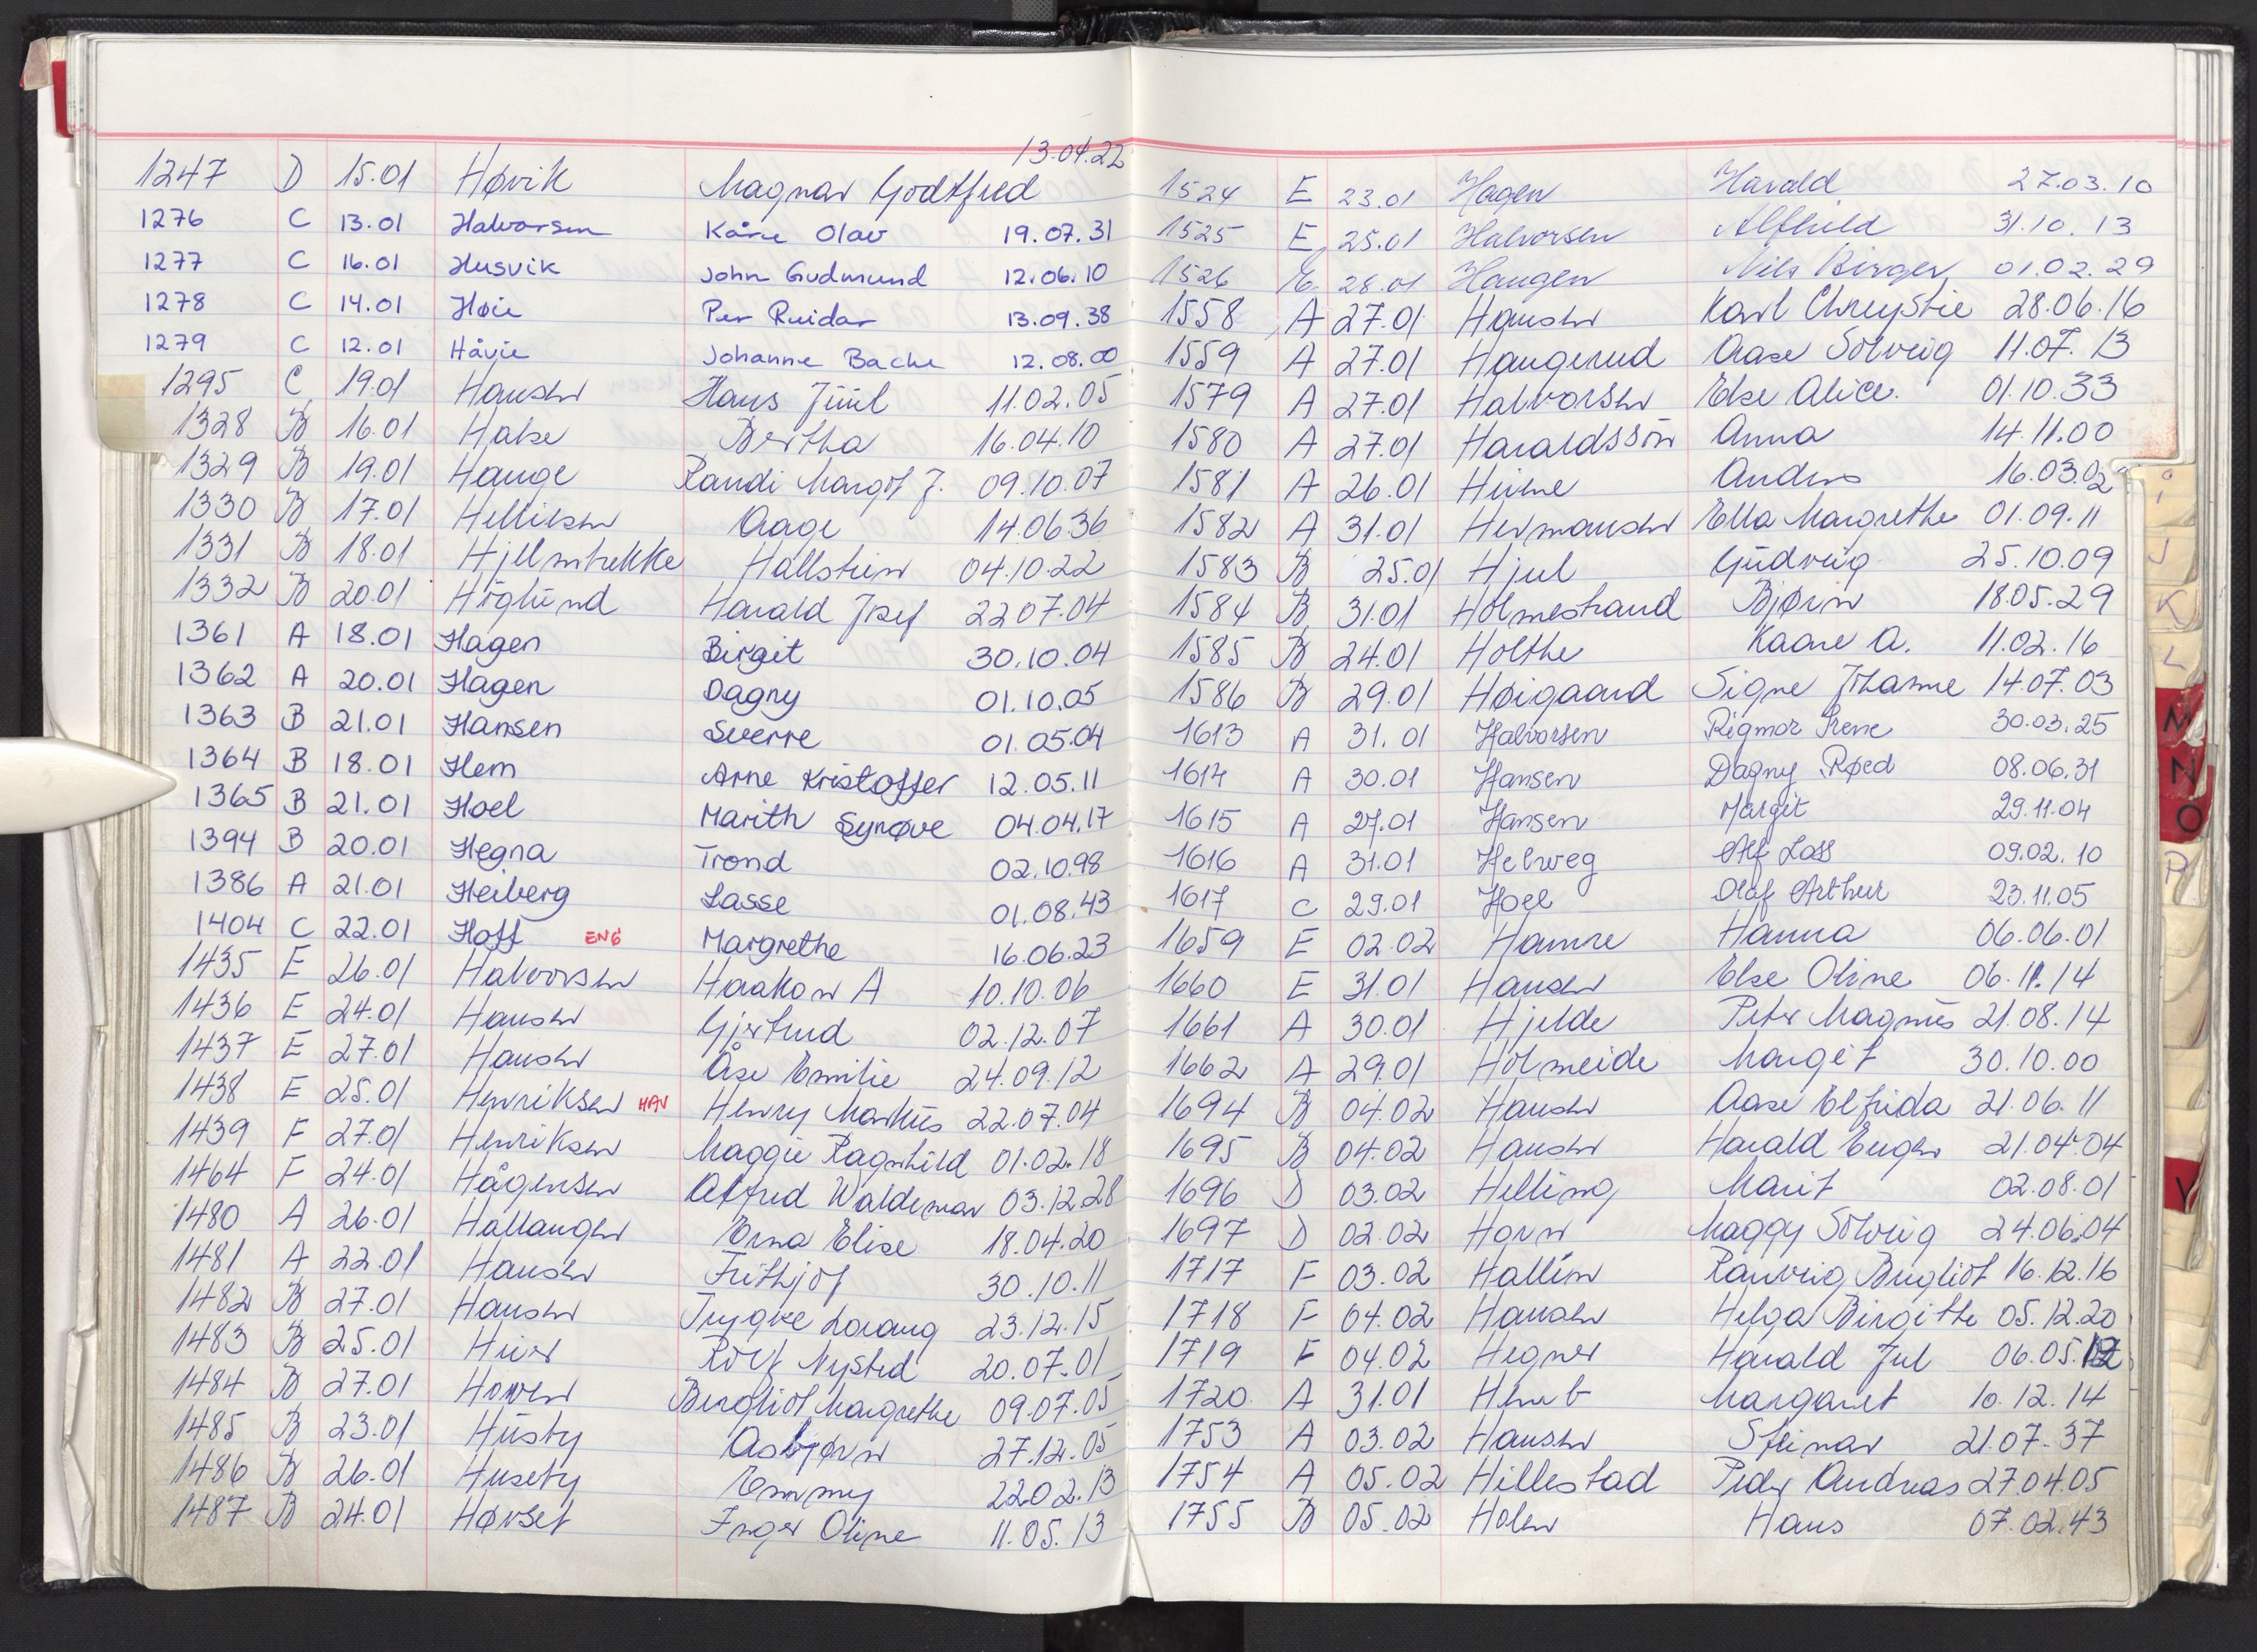 13.04.22
1247 D 15.01 Høvik Magnar Godtfred
1276 C 13.01 Halvorsen Kåre Olav 19.07.31
1277 C 16.01 Husvik John Gudmund 12.06.10
1278 C 14.01 Høie Per Reidar 13.09.38
1279 C 12.01 Håvie Johanne Bache 12.08.00
1295 C 19.01 Hansen Hans Juul 11.02.05
1328 B 16.01 Halse Bertha 16.04.10
1329 B 19.01 Hauge Randi Margot J. 09.10.07
1330 B 17.01 Helliksen Aage 14.06.36
1331 B 18.01 Hjelmtvekke Hallstein 04.10.22
1332 B 20.01 Höglund Harald Josef 22.07.04
1361 A 18.01 Hagen Birgit 30.10.04
1362 A 20.01 Hagen Dagny 01.10.05
1363 B 21.01 Hansen Sverre 01.05.04
1364 B 18.01 Hem Arne Kristoffer 12.05.11
1365 B 21.01 Hoel Marith Synøve 04.04.17
1394 B 20.01 Hegna Trond 02.10.98
1386 A 21.01 Heiberg Lasse 01.08.43
1404 C 22.01 Hoff ENG Margrethe 16.06.23
1435 E 26.01 Halvorsen Haakon A 10.10.06
1436 E 24.01 Hansen Gjertrud 02.12.07
1437 E 27.01 Hansen Åse Emilie 24.09.12
1438 E 25.01 Henriksen HAV Henry Markus 22.07.04
1439 F 27.01 Henriksen Maggie Ragnhild 01.02.18
1464 F 24.01 Hågensen Alfred Waldemar 03.12.28
1480 A 26.01 Hallangen Erna Elise 18.04.20
1481 A 22.01 Hansen Frithjof 30.10.11
1482 B 27.01 Hansen Trygve Lorang 23.12.15
1483 B 25.01 Hiver Rolf Nysted 20.07.01
1484 B 27.01 Hoven Bergliot Margrethe 09.07.05
1485 B 23.01 Husby Asbjørn 27.12.05
1486 B 26.01 Huseby Emmy 22.02.13
1487 B 24.01 Hørset Inger Oline 11.05.13
1524 E 23.01 Hagen Harald 27.03.10
1525 E 25.01 Halvorsen Alfhild 31.10.13
1526 E 28.01 Haugen Nils Birger 01.02.29
1558 A 27.01 Hansen Karl Chrystie 28.06.16
1559 A 27.01 Haugerud Aase Solveig 11.07.13
1579 A 27.01 Halvorsen Else Alice. 01.10.33
1580 A 27.01 Haraldssön Anna 14.11.00
1581 A 26.01 Anders 16.03.02
1582 A 31.01 Hermansen Ella Margrethe 01.09.11
1583 B 25.01 Hjul Gudveig 25.10.09
1584 B 31.01 Holmestrand Bjørn 18.05.29
1585 B 24.01 Holthe Kaare A. 11.02.16
1586 B 29.01 Høigaard Signe Johanne 14.07.03
1613 A 31.01 Halvorsen Rigmor Irene 30.03.25
1614 A 30.01 Hansen Dagny Røed 08.06.31
1615 A 27.01 Hansen Margit 29.11.04
1616 A 31.01 Helweg Alf Lass 09.02.10
1617 C 29.01 Hoel Olaf Arthur 23.11.05
1659 E 02.02 Hamre Hanna 06.06.01
1660 E 31.01 Hansen Else Oline 06.11.14
1661 A 30.01 Hjelde Peter Magnus 21.08.14
1662 A 29.01 Holmeide Margit 30.10.00
1694 B 04.02 Hansen Aase Elfrida 21.06.11
1695 B 04.02 Hansen Harald Eugen 21.04.04
1696 D 03.02 Helling Marit 02.08.01
1697 D 02.02 Horn Maggy Solveig 24.06.04
1717 F 03.02 Hallin Ranveig Bergliot 16.12.16
1718 F 04.02 Hansen Helga Birgithe 05.12.20
1719 F 04.02 Hegner Harald Jul 06.05.12
1720 A 31.01 Margaret 10.12.14
1753 A 03.02 Hansen Steinar 21.07.37
1754 A 05.02 Hillestad Peder Andreas 27.04.05
1755 B 05.02 Holen Hans 07.02.43
I
J
K
L
M
N
O
P
V